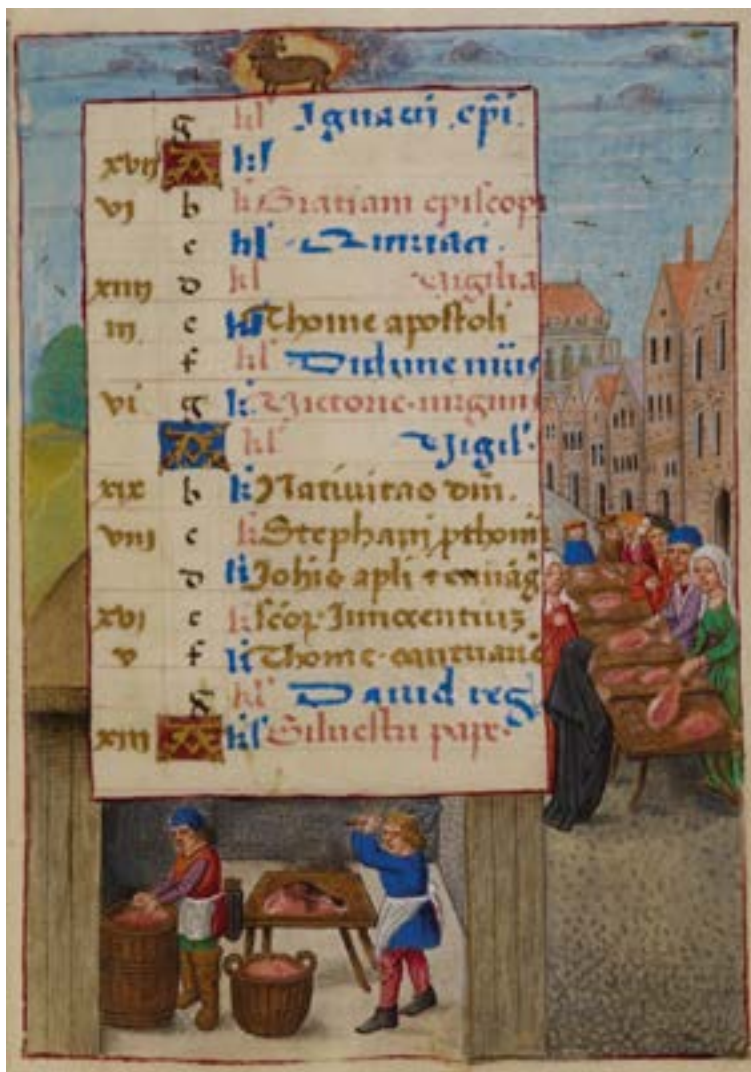 g kl Ignacii epi.
xvij A kl
vi b kl Gratiani episcopi
c kl Quiriaci.
xiiij d kl Vigilia
iij e kl Thome apostoli
f kl
vi g kl Victorie virginis
A kl Vigil.
xix b kl Nativitas dni.
viij c kl Stephani pthom
d kl Johis apli & evvag
xvi e kl scor Innocentiu
v f kl Thome
g kl David reg
xiij A kl Silvestri pape.